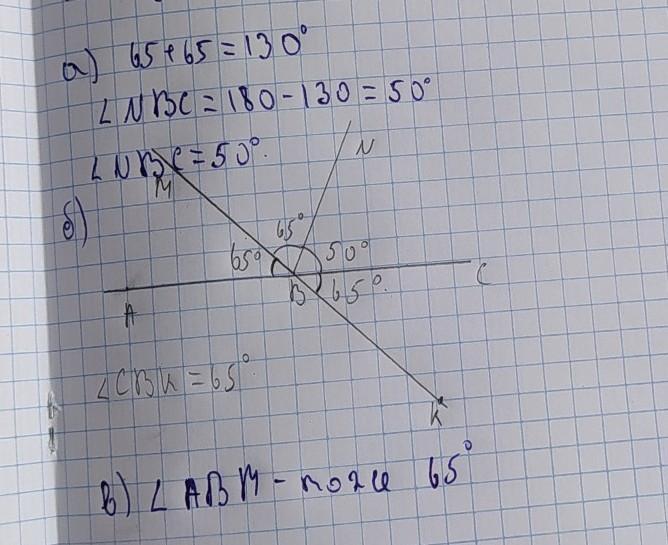 а) 65+65=130°
∠NBC=180-130=50°
∠NBC=50°.
M
N
б)
65°
65°
50°
A
B
65°.
C
∠CBK=65°
K
в) ∠ABM - тоже 65°